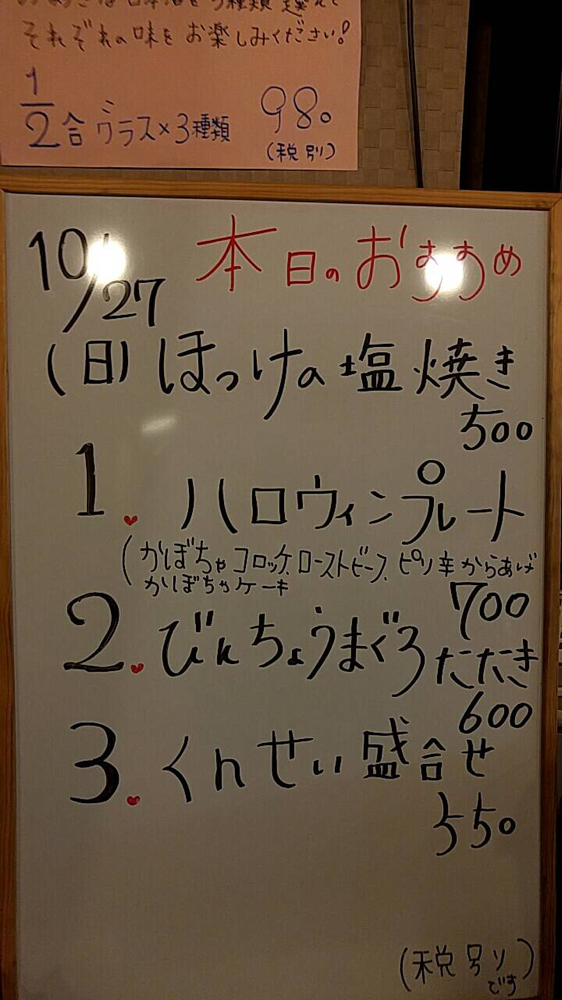 日本酒を3種類選んで
それぞれの味をお楽しみください!
1/2合グラス×3種類 980
(税別)
10/27 本日のおすすめ
(日) ほっけの塩焼き
500
1. ハロウィンプレート
(かぼちゃコロッケ、ローストビーフ、ピリ辛からあげ
かぼちゃケーキ
700
2. びんちょうまぐろたたき
600
3. くんせい盛合せ
550
(税別)
です